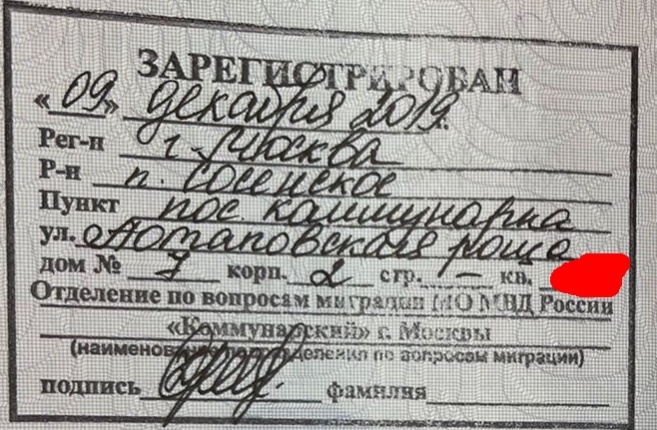 ЗАРЕГИСТРИРОВАН
«09» декабря 2019г.
Рег-н г. Москва
Р-н п. Сосенское
Пункт пос. Коммунарка
ул. Потаповская роща
дом № 7 корп. 2 стр. – кв.
Отделение по вопросам миграции МО МВД России
«Коммунарский» г. Москвы
(наименование подразделения по вопросам миграции)
подпись фамилия